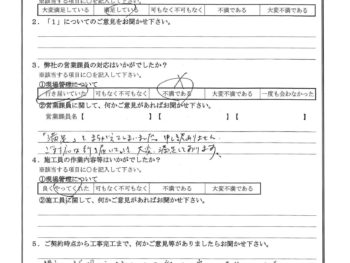 ※該当する項目に○を記入して下さい。
大変満足している 満足している 可もなく不可もなく 不満である 大変不満である
2．「1」についてのご意見をお聞かせ下さい。
3．弊社の営業課員の対応はいかがでしたか？
※該当する項目に○を記入して下さい。
①現場管理について
行き届いていた 可もなく不可もなく 不満である 大変不満である 一度も会わなかった
②営業課員に関して、何かご意見があればお聞かせ下さい。
営業課員名【 】【 】【 】
「満足」とまちがえてしまいました。申し訳ありません。
行き届いていて大変満足しております。
4．施工員の作業内容等はいかがでしたか？
※該当する項目に○を記入して下さい。
①現場管理について
良くやってくれた 可もなく不可もなく 不満である 大変不満である
②施工員に関して、何かご意見があればお聞かせ下さい。
5．ご契約時点から工事完工まで、何かご意見等がありましたらお聞かせ下さい。